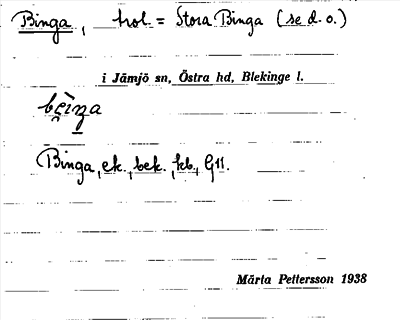 Binga, hol = Stora Binga (se d. o.)
i Jämjö sn, Östra hd, Blekinge l.
Binga, ek., bek., kb., G11.
Märta Pettersson 1938